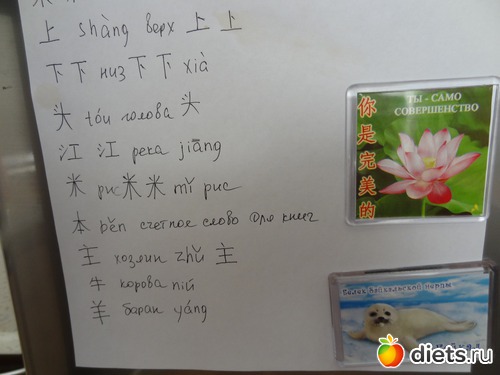 上 shàng верх 上 上
下 下 низ 下 下 xià
头 tóu голова 头
江 江 река jiāng
米 рис 米 米 mǐ рис
本 běn счетное слово для книг
主 хозяин zhǔ 主
牛 корова niú
羊 баран yáng
ТЫ - САМО
СОВЕРШЕНСТВО
你是完美的
diets.ru